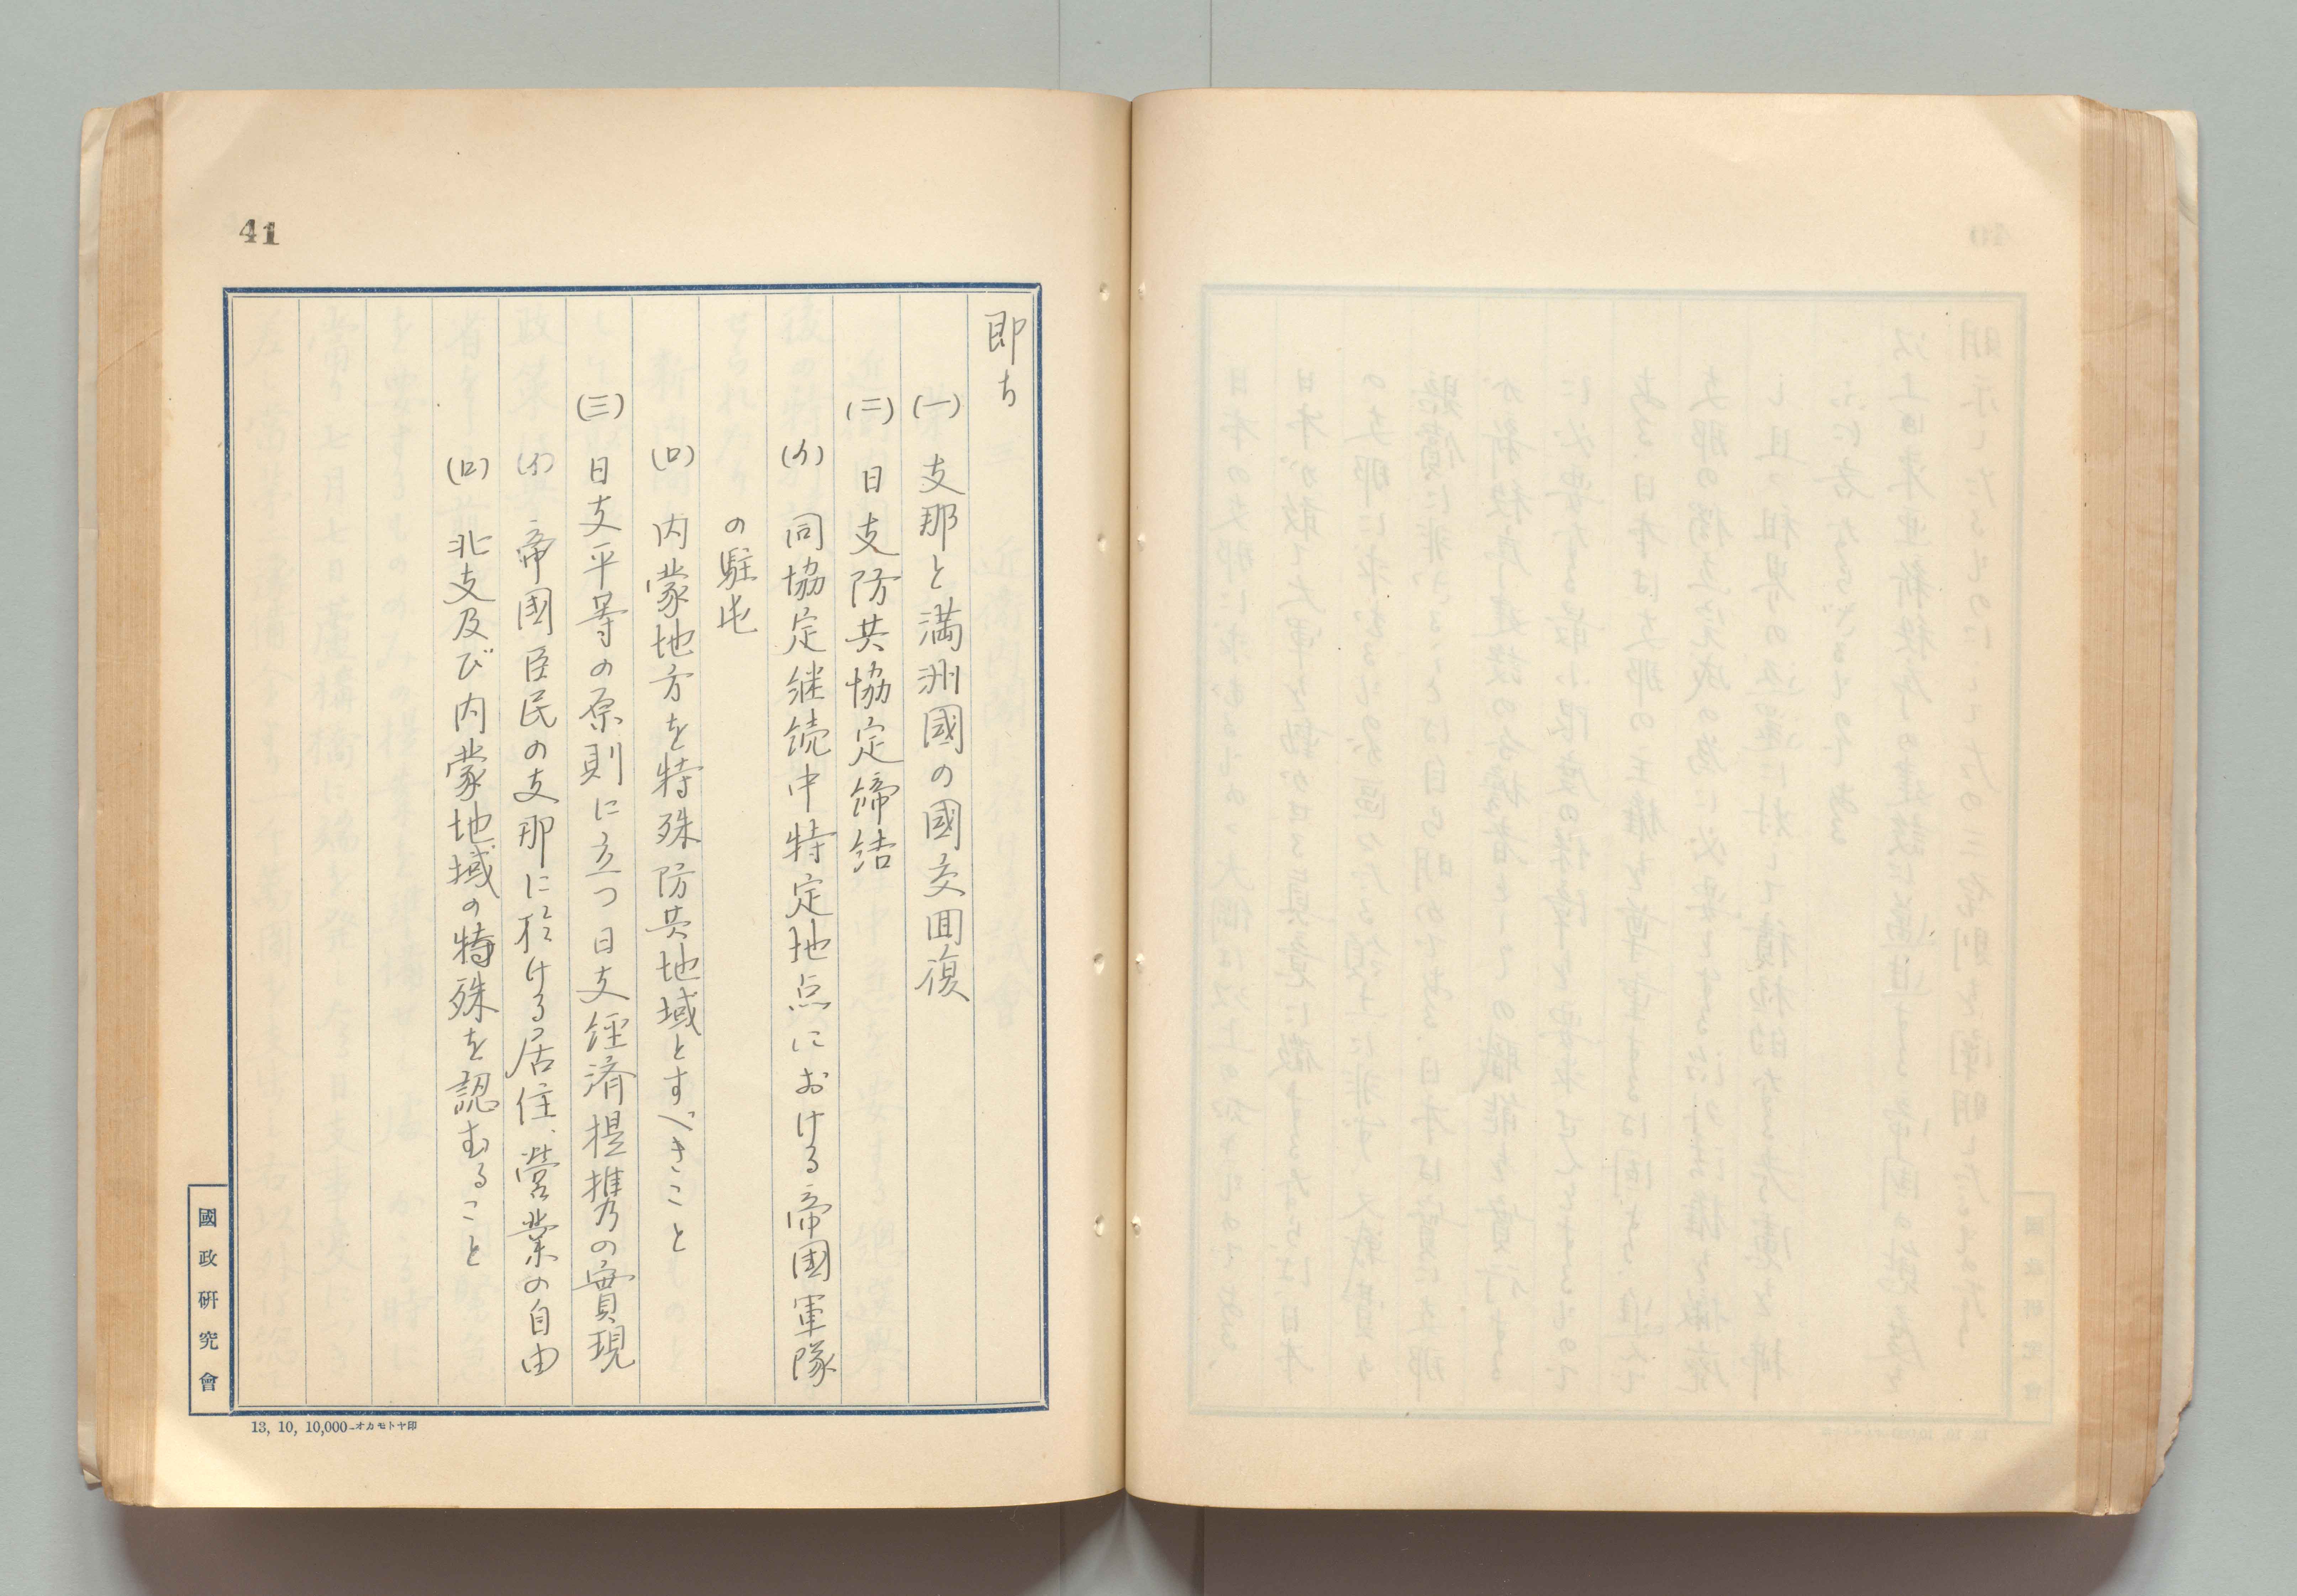 41
即ち
(一) 支那と満洲國の國交囬復
(二) 日支防共協定締結
(イ) 同協定継続中特定地点における帝國軍隊
の駐屯
(ロ) 内蒙地方を特殊防共地域とすべきこと
(三) 日支平等の原則に立つ日支経済提携の實現
(イ) 帝國臣民の支那に於ける居住、営業の自由
(ロ) 北支及び内蒙地域の特殊を認むること
國政研究會
13, 10, 10,000-オカモトヤ印